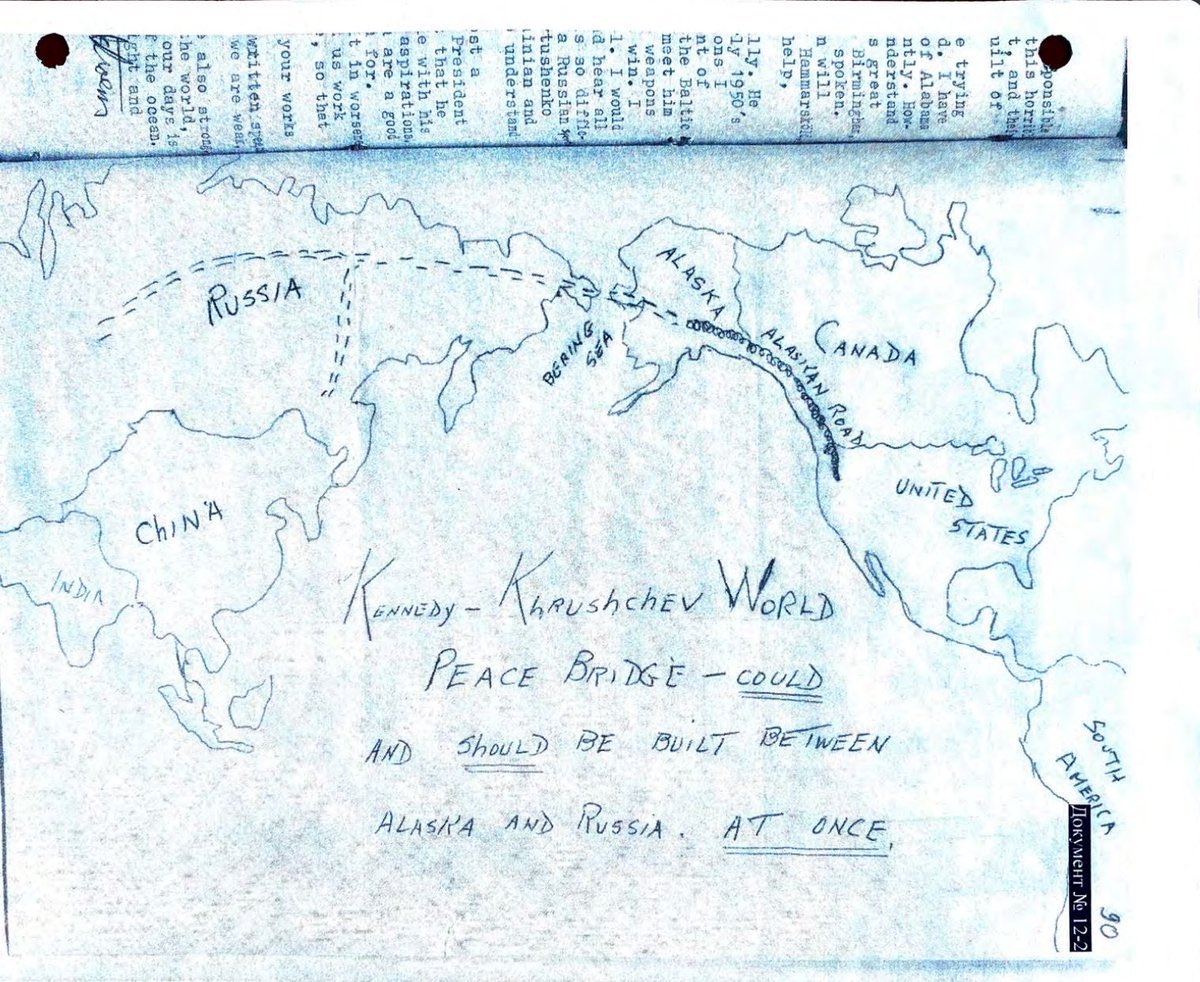 ponsible
this horrib
t, and thei
uilt of
e trying
d. I have
of Alabama
ntly. How-
nderstand
s great
Birmingham
spoken.
n will
Hammarsköl
help,
lly. He
ly 1950's
ons I
nt of
the Baltic
meet him
weapons
win. I
l. I would
d hear all
s so diffic-
a Russian
tushenko
inian and
understand
st a
President
that he
e with his
aspirations
are a good
for.
t in worsen
us work
, so that
your works
written
we are weak
also strong
he world,
our days is
f the ocean.
ght and
RUSSIA
ALASKA
BERING
SEA
ALASKAN ROAD
CANADA
UNITED
STATES
CHINA
INDIA
KENNEDY – KHRUSHCHEV WORLD
PEACE BRIDGE – COULD
AND SHOULD BE BUILT BETWEEN
ALASKA AND RUSSIA. AT ONCE.
SOUTH
AMERICA
Документ № 12-2
90